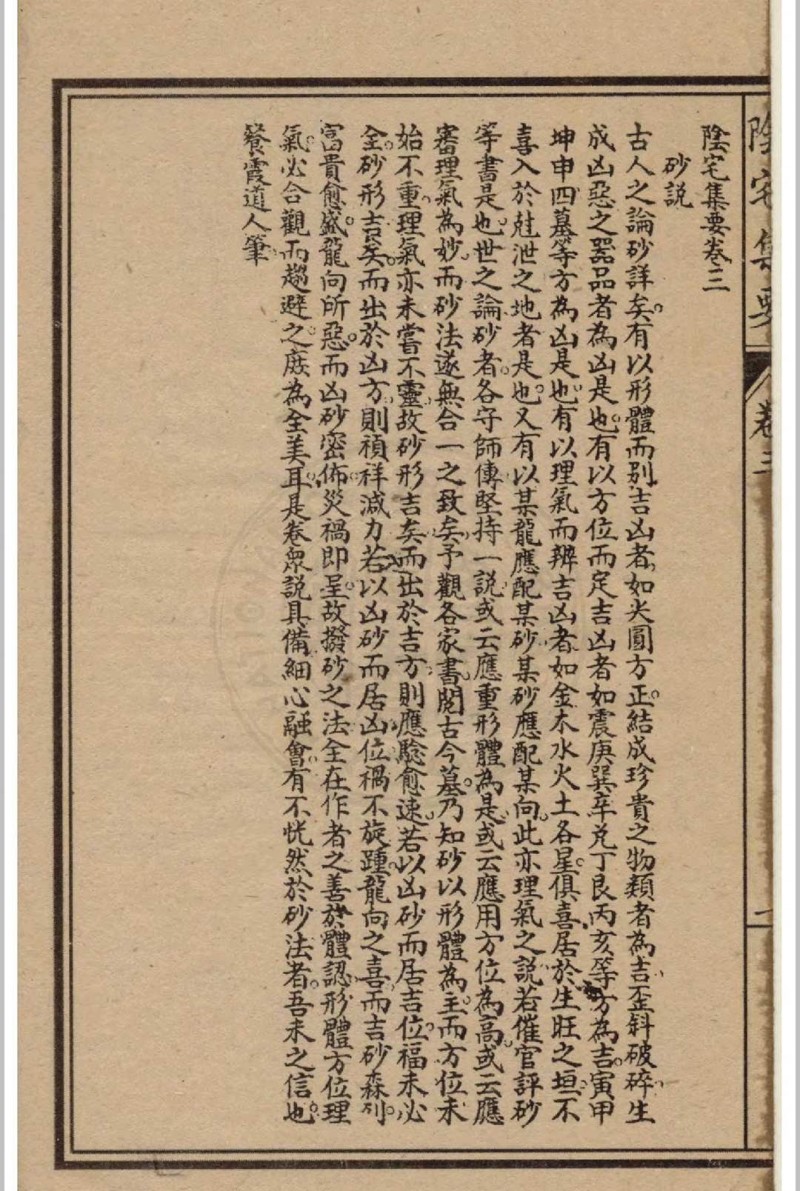 陰宅集要卷三
砂說
古人之論砂詳矣。有以形體而别吉凶者、如尖圓方正。結成珍貴之物類者為吉、歪斜破碎、生
成凶惡之器品者為凶是也。有以方位而定吉凶者、如震庚巽辛兌丁艮丙亥等方為吉。寅甲
坤申四墓等方為凶是也。有以理氣而辨吉凶者、如金木水火土各星。俱喜居於生旺之垣。不
喜入於尅泄之地者是也。又有以某龍應配某砂、某砂應配某向。此亦理氣之說、若催官評砂
等書是也。世之論砂者。各守師傳、堅持一說、或云應重形體為是、或云應用方位為高、或云應
審理氣為妙、而砂法遂無合一之致矣、予觀各家書、閱古今墓。乃知砂以形體為主、而方位未
始不重、理氣亦未嘗不靈、故砂形吉矣、而出於吉方、則應騐愈速、若以凶砂而居吉位、福未必
全、砂形吉矣、而出於凶方、則禎祥減力、若以凶砂而居凶位、禍不旋踵。龍向之喜、而吉砂森列。
富貴愈盛。龍向所惡。而凶砂密佈。災禍即呈。故撥砂之法、全在作者之善於體認、形體方位理
氣。必合觀而趨避之、庶為全美耳。是卷衆說具備、細心融會、有不恍然於砂法者。吾未之信也。
餐霞道人筆
陰宅集要
卷三